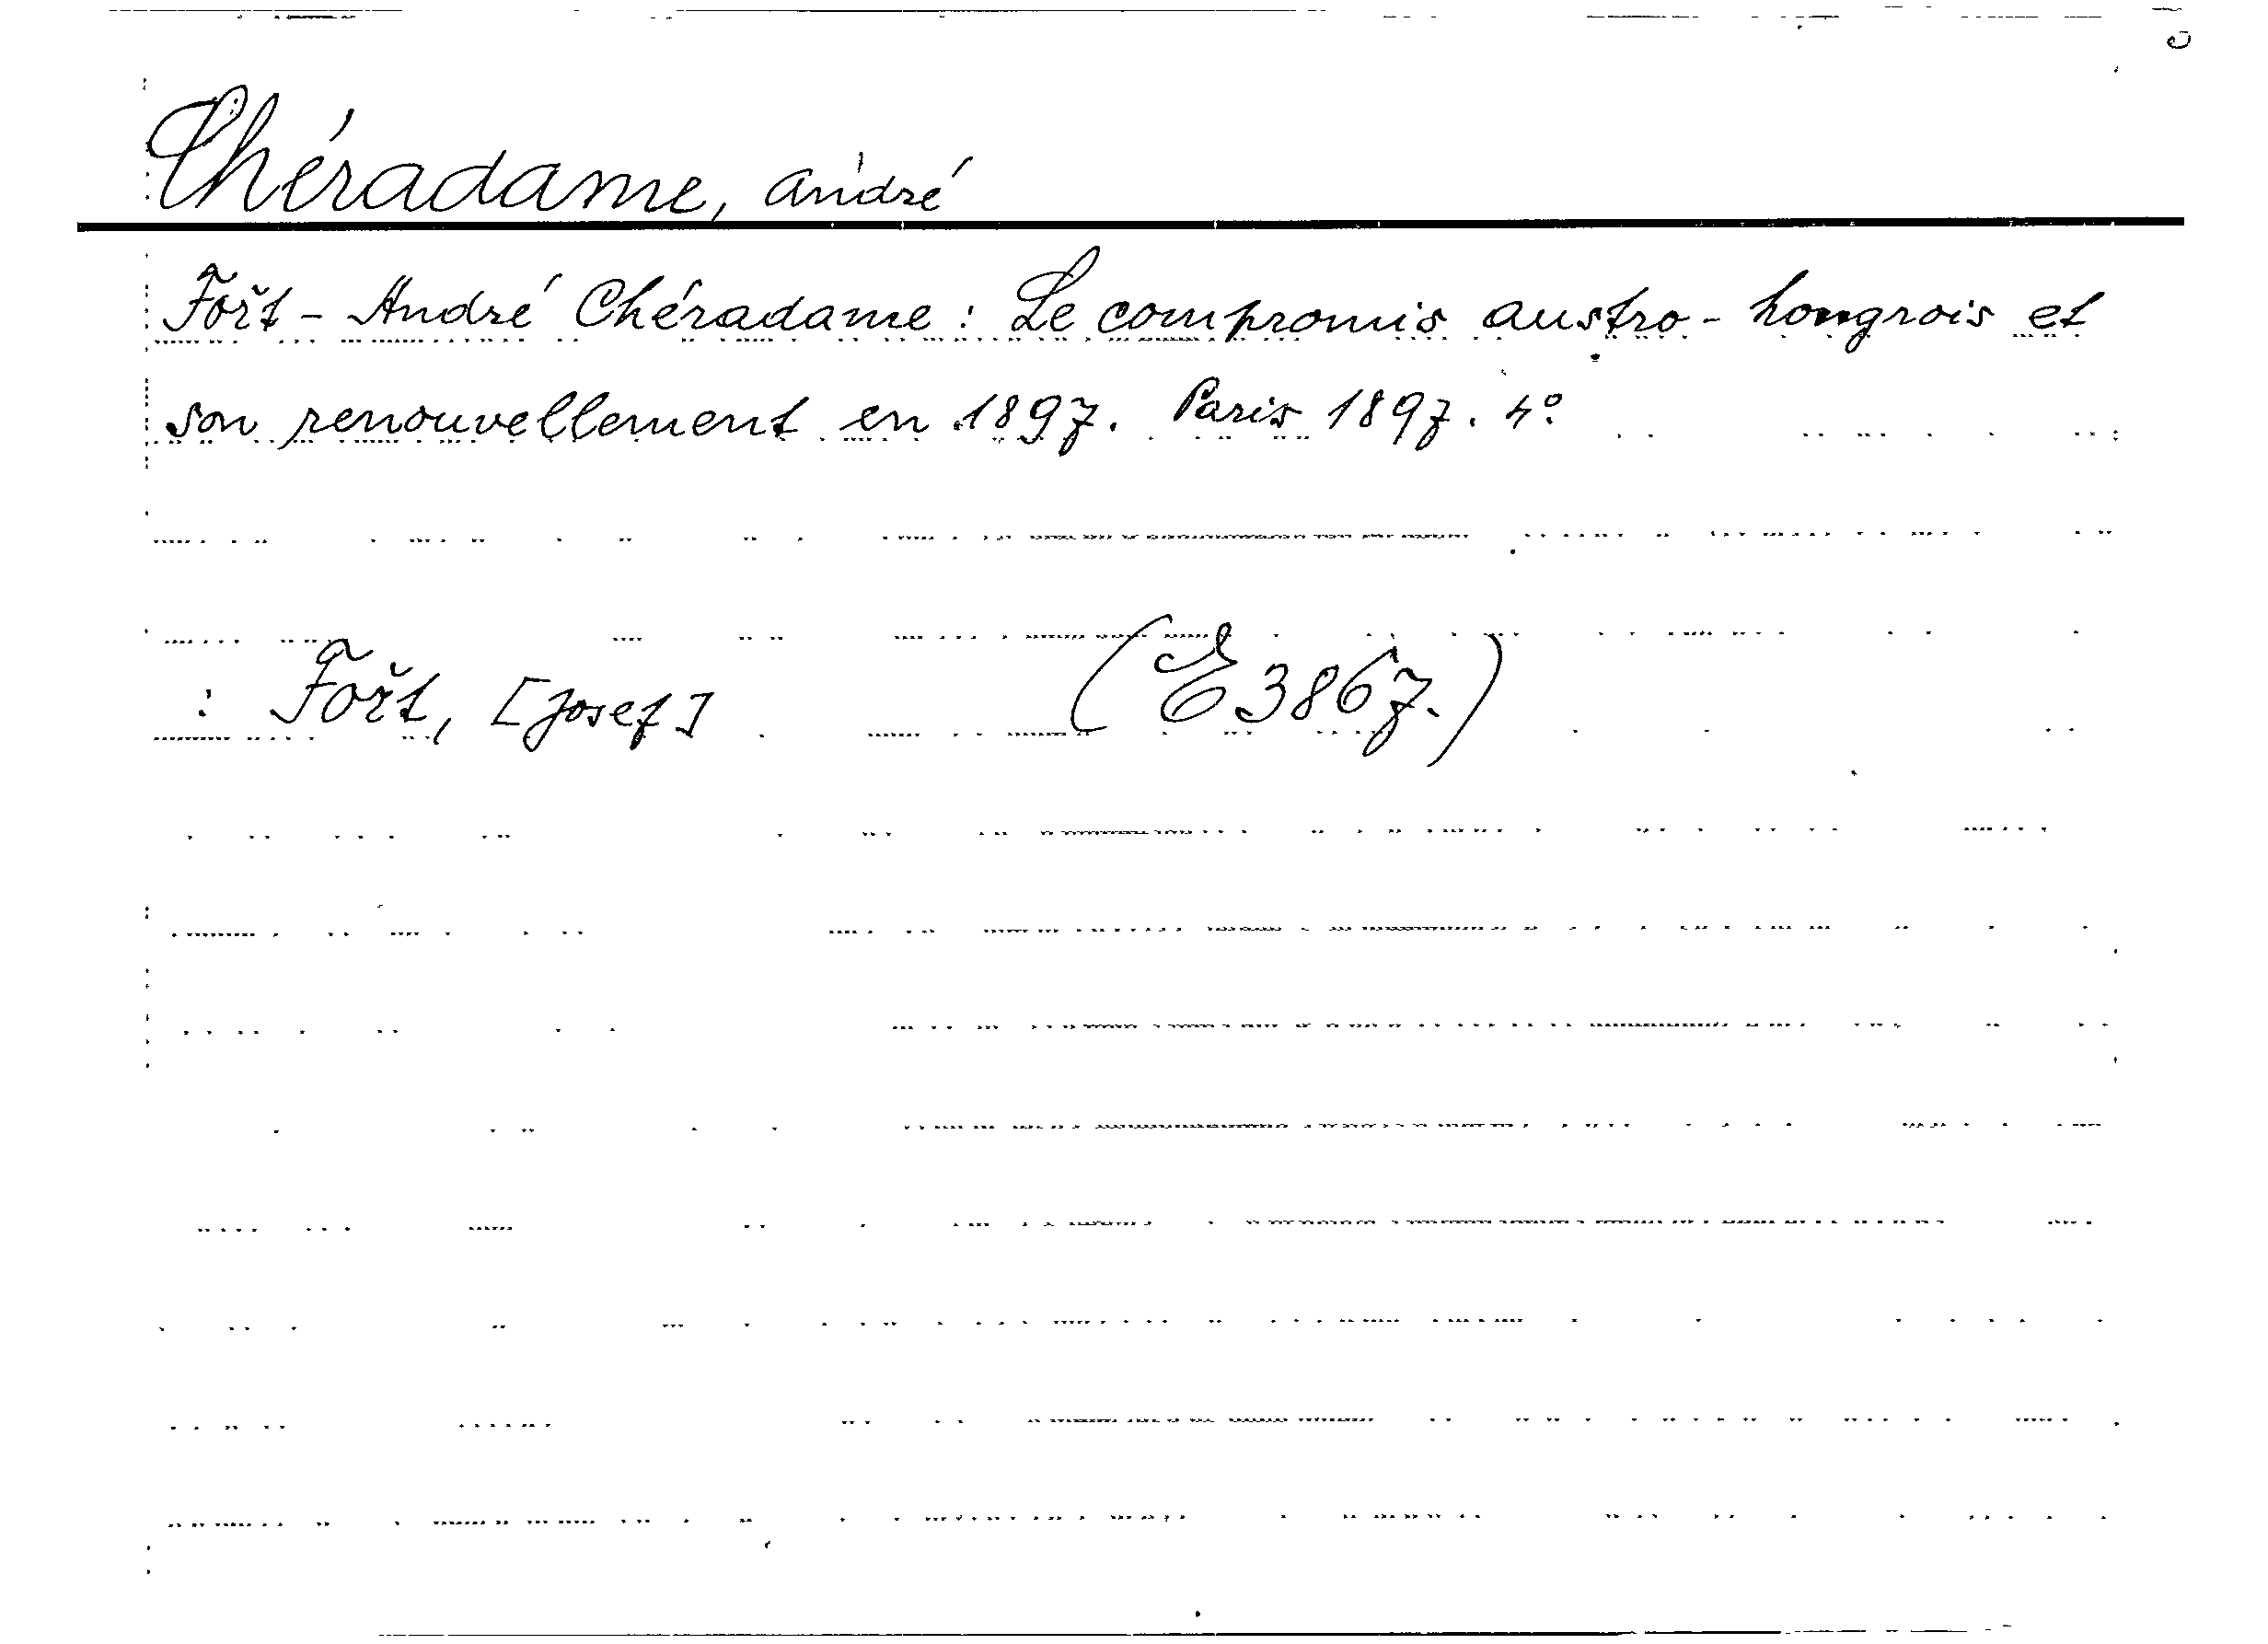 Chéradame, André
Fořt - André Chéradame : Le compromis austro-hongrois et
son renouvellement en 1897. Paris 1897. 4°.
: Fořt, [Josef] (E 3867.)